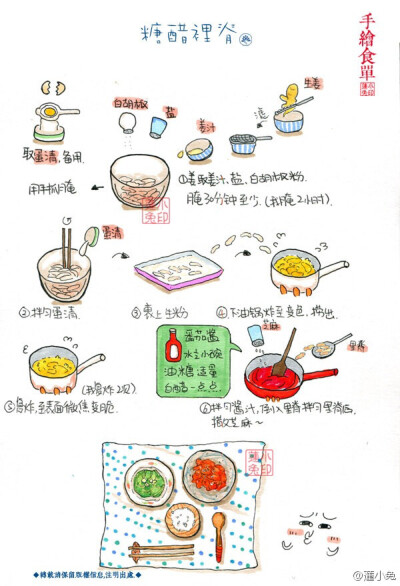 糖醋裡脊
手繪食單
生姜
白胡椒
盐
姜汁
取蛋清,备用.
用手抓腌
①姜取姜汁,盐,白胡椒粉.
腌30分钟至少.(我腌2小时).
蛋清
②拌匀蛋清.
③裹上生粉
④下油锅炸至变色,捞出.
番茄酱
水立小碗
油 糖 适量
白醋一点点
芝麻
里脊
(我复炸2次)
⑤复炸,至表面微焦变脆.
⑥拌匀酱汁,倒入里脊拌匀里脊后,
撒芝麻~
◆轉載請保留版權信息,注明出處◆